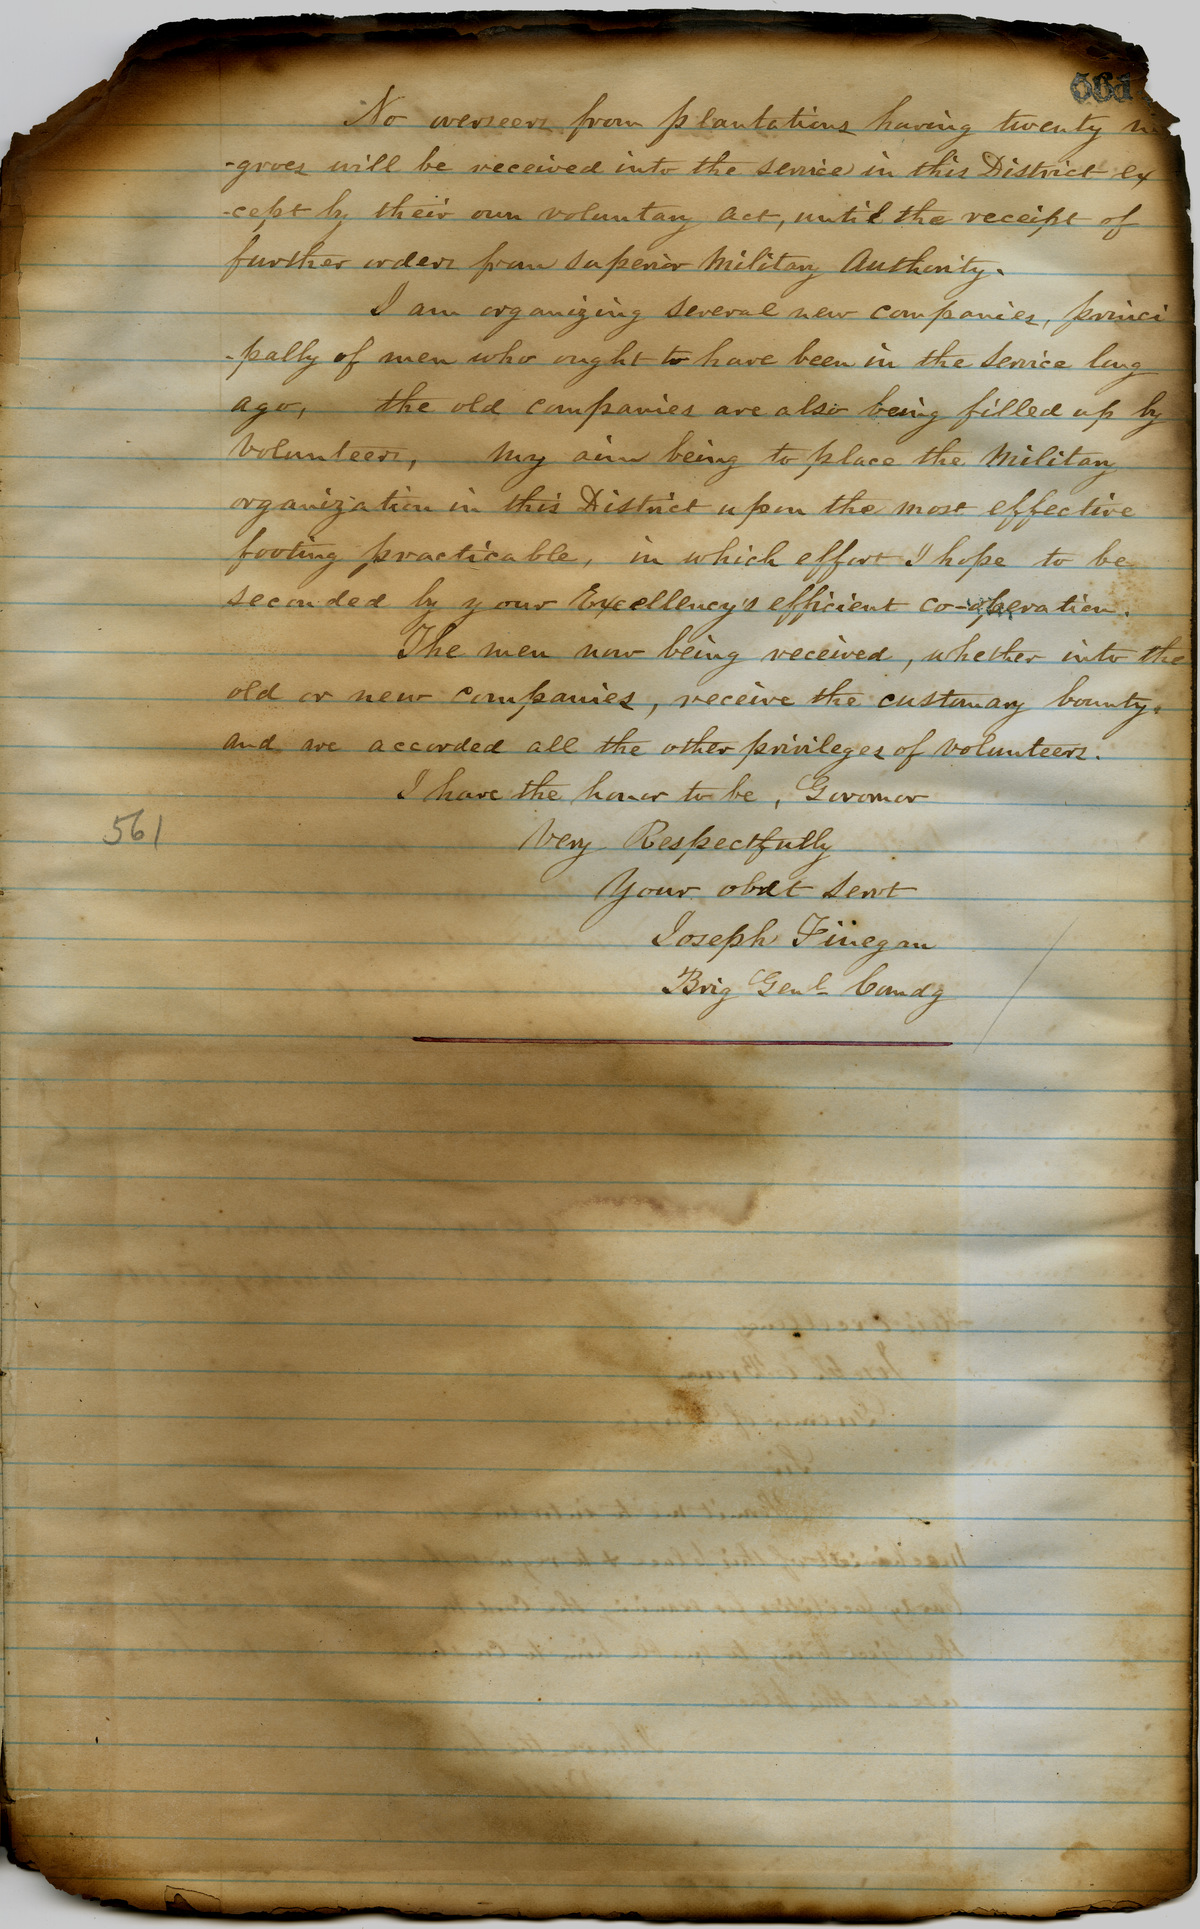 561
No overseers from plantations having twenty ni
-groes will be received into the service in this District ex
-cept by their own voluntary act, until the receipt of
further orders from superior Military Authority.
I am organizing several new companies, princi
-pally of men who ought to have been in the service long
ago, the old companies are also being filled up by
Volunteers, My aim being to place the Military
organization in this District upon the most effective
footing practicable, in which effort I hope to be
seconded by your Excellency's efficient co-operation.
The men now being received, whether into the
old or new companies, receive the customary bounty,
and are accorded all the other privileges of volunteers.
I have the honor to be, Governor
561
Very Respectfully
Your obdt Servt
Joseph Finegan
Brig Genl Comdg